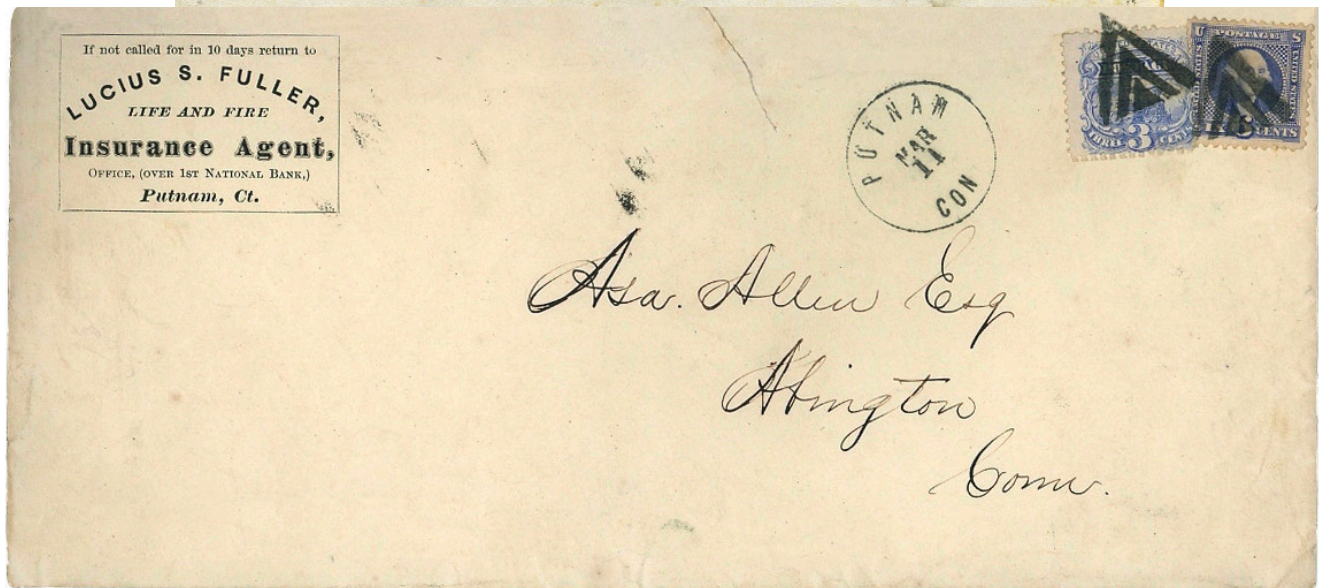 If not called for in 10 days return to
LUCIUS S. FULLER,
LIFE AND FIRE
Insurance Agent,
OFFICE, (OVER 1ST NATIONAL BANK,)
Putnam, Ct.
PUTNAM
MAR
11
CON
THREE 3 CENTS
U POSTAGE S
UNITED STATES
CENTS
Asa. Allen Esq
Abington
Conn.